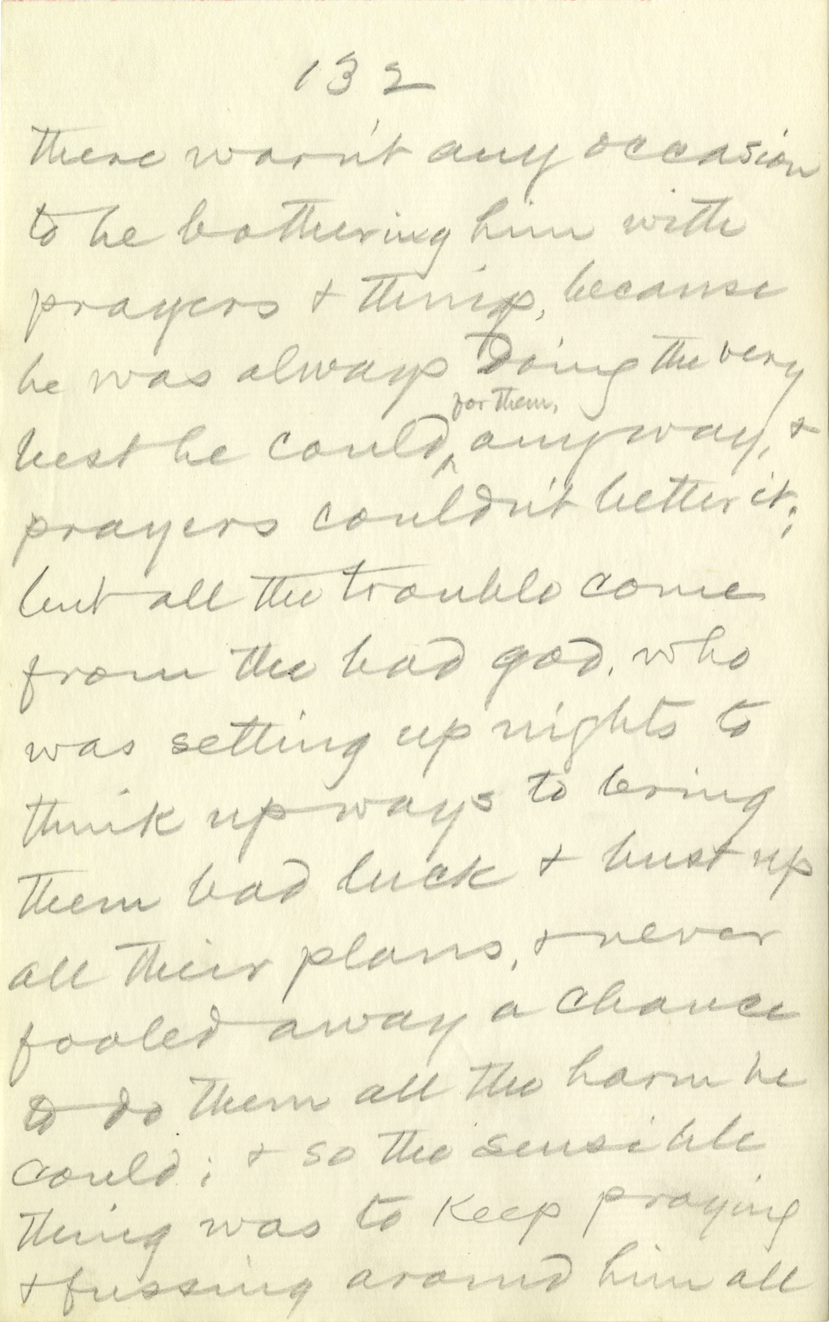 132
there warn't any occasion
to be bothering him with
prayers & things, because
he was always doing the very
for them,
best he could, anyway, &
prayers couldn't better it;
but all the trouble come
from the bad god, who
was setting up nights to
think up ways to bring
them bad luck & bust up
all their plans, & never
fooled away a chance
to do them all the harm he
could; & so the sensible
thing was to keep praying
& fussing around him all